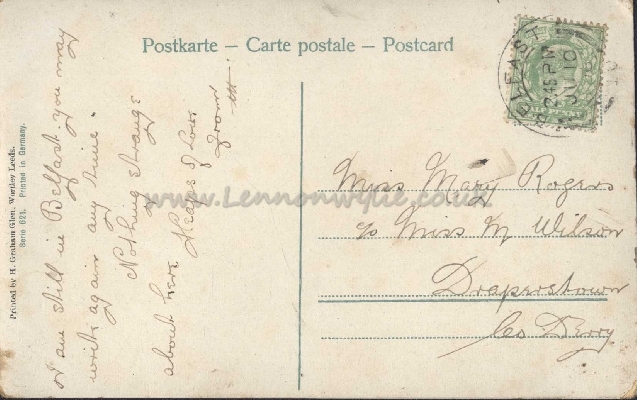 Postkarte – Carte postale – Postcard
BELFAST
2.45 PM
10
I am still in Belfast, you may
write again any time.
Nothing strange
about here.
Heaps of love
From
M.
Miss Mary Rogers
c/o Miss M Wilson
Draperstown
Co Derry
Printed by H. Graham Glen, Wortley Leeds.
Serie 621. Printed in Germany.
www.Lennonwylie.co.uk